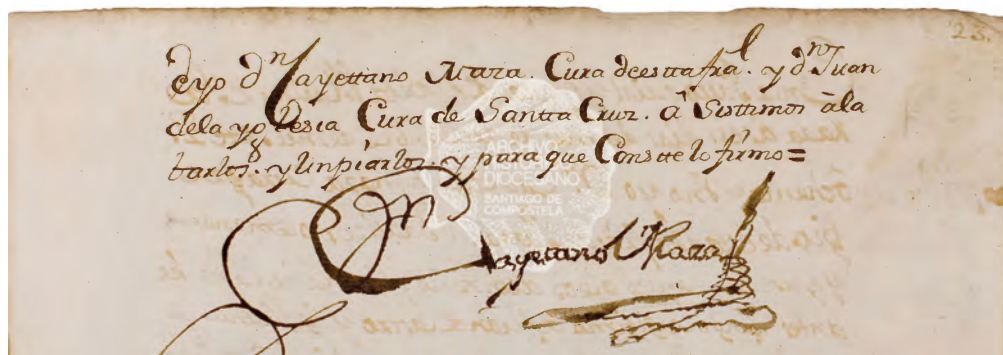 28.
eyo dn Cayettano Maza. Cura deesttafral. y dn Juan
dela yglesia Cura de Santta Cruz. â Sisttimos âla
barlos. y linpiarlos. y para que Constte lo firmo=
ARCHIVO
HISTÓRICO
DIOCESANO
SANTIAGO DE
COMPOSTELA
Dn Cayetano Maza